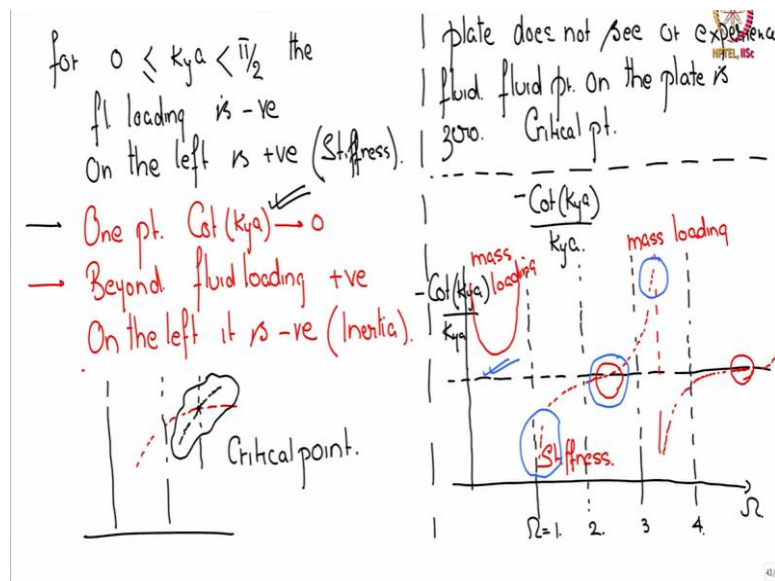 for 0 ≤ kya < π/2 the
fl. loading is -ve
On the left is +ve (Stiffness).
→ One pt. Cot(kya) → 0
→ Beyond fluid loading +ve
On the left it is -ve (Inertia).
Critical point.
plate does not see or experience
NPTEL, IISc
fluid. fluid pr. on the plate is
zero. Critical pt.
-Cot(kya)
kya.
mass loading
mass loading
-Cot(kya)
kya
Stiffness.
Ω
Ω=1. 2. 3 4.